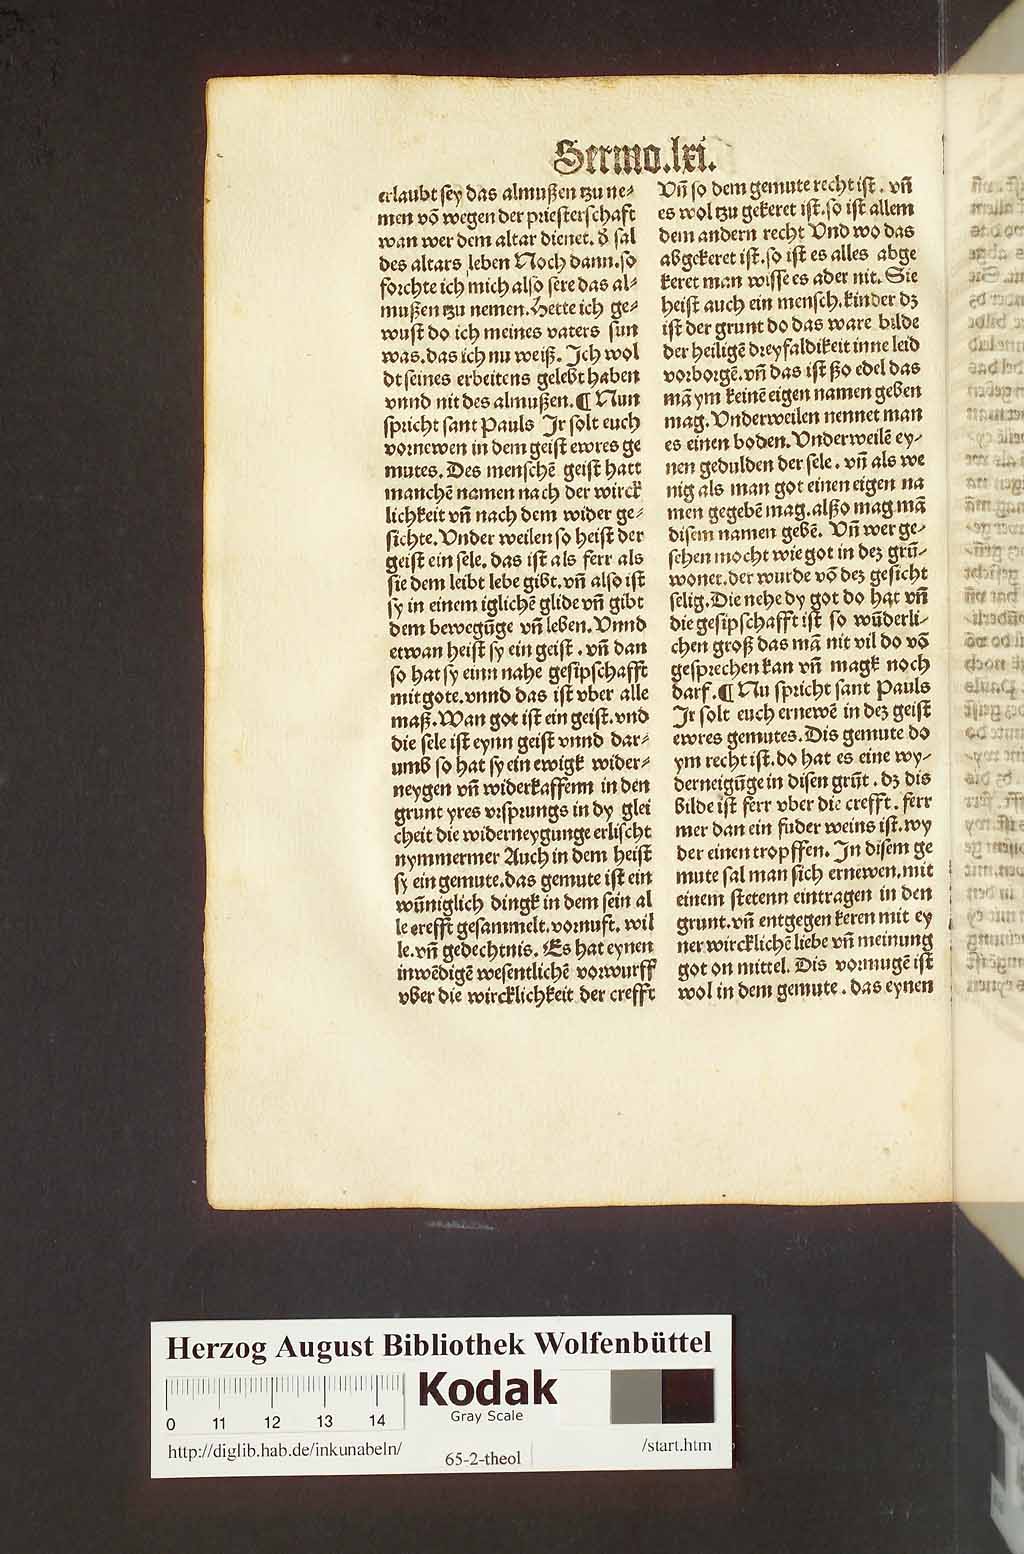 Sermo.lxi.
erlaubt sey das almußen tzu ne⸗
men vō wegen der priesterschaft
wan wer dem altar dienet. d̕ sal
des altars leben Noch dann. so
forchte ich mich also sere das al⸗
mußen tzu nemen. Hette ich ge⸗
wust do ich meines vaters sun
was. das ich nu weiß. Ich wol
dt seines erbeitens gelebt haben
vnnd nit des almußen. ¶ Nun
spricht sant Pauls Ir solt euch
vornewen in dem geist ewres ge
mutes. Des menschē geist hatt
manchē namen nach der wirck
lichkeit vn̄ nach dem wider ge⸗
sichte. Vnder weilen so heist der
geist ein sele. das ist als ferr als
sie dem leibt lebe gibt. vn̄ also ist
sy in einem iglichē glide vn̄ gibt
dem bewegūge vn̄ leben. Vnnd
etwan heist sy ein geist. vn̄ dan
so hat sy einn nahe gesipschafft
mit gote. vnnd das ist vber alle
maß. Wan got ist ein geist. vnd
die sele ist eynn geist vnnd dar⸗
umb so hat sy ein ewigk wider⸗
neygen vn̄ widerkaffenn in den
grunt yres vrsprungs in dy glei
cheit die widerneygunge erlischt
nymmermer Auch in dem heist
sy ein gemute. das gemute ist ein
wūniglich dingk in dem sein al
le crefft gesammelt. vornuft. wil
le. vn̄ gedechtnis. Es hat eynen
inwēdigē wesentlichē vorwurff
vber die wircklichkeit der crefft
Vn̄ so dem gemute recht ist. vn̄
es wol tzu gekeret ist. so ist allem
dem andern recht Vnd wo das
abgekeret ist. so ist es alles abge
keret man wisse es ader nit. Sie
heist auch ein mensch. kinder dz
ist der grunt do das ware bilde
der heiligē dreyfaldikeit inne leid
vorborgē. vn̄ das ist ßo edel das
mā ym keinē eigen namen geben
mag. Vnderweilen nennet man
es einen boden. Vnderweilē ey⸗
nen gedulden der sele. vn̄ als we
nig als man got einen eigen na
men gegebē mag. alßo mag mā
disem namen gebē. Vn̄ wer ge⸗
sehen mocht wie got in dez grū⸗
wonet. der wurde vō dez gesicht
selig. Die nehe dy got do hat vn̄
die gesipschafft ist so wūderli⸗
chen groß das mā nit vil do vō
gesprechen kan vn̄ magk noch
darf. ¶ Nu spricht sant Pauls
Ir solt euch ernewē in dez geist
ewres gemutes. Dis gemute do
ym recht ist. do hat es eine wy⸗
derneigūge in disen grūt. dz dis
bilde ist ferr vber die crefft. ferr
mer dan ein fuder weins ist. wy
der einen tropffen. In disem ge
mute sal man sich ernewen. mit
einem stetenn eintragen in den
grunt. vn̄ entgegen keren mit ey
ner wircklichē liebe vn̄ meinung
got on mittel. Dis vormugē ist
wol in dem gemute. das eynen
Herzog August Bibliothek Wolfenbüttel
0 11 12 13 14
Kodak
Gray Scale
http://diglib.hab.de/inkunabeln/
65-2-theol
/start.htm